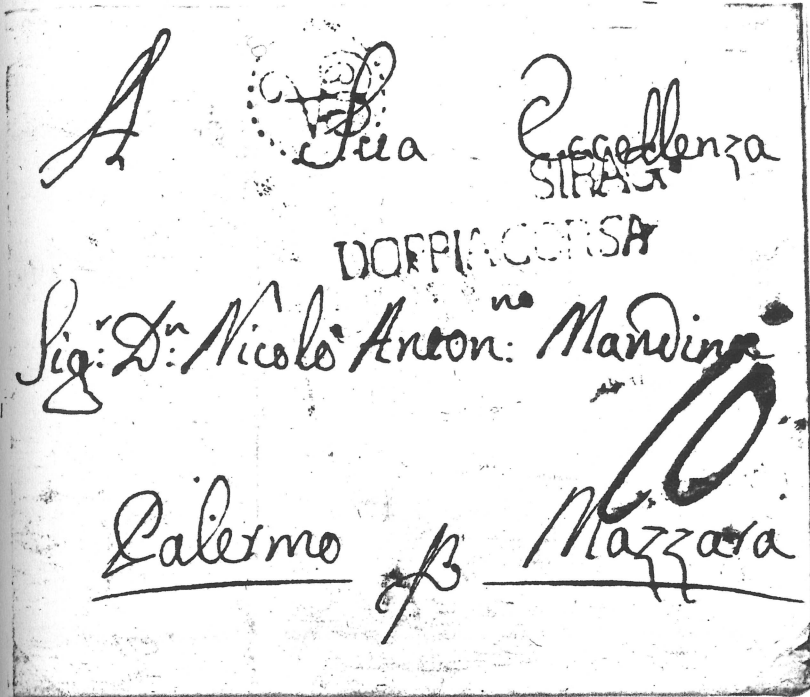 A Sua Eccellenza
SIRAG
DOPPIA CORSA
Sig:r D:n Nicolò Anton:no Mandina
10
Palermo Mazzara